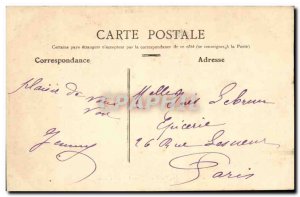 CARTE POSTALE
Certains pays étrangers n'acceptent pas la correspondance de ce côté (se renseigner à la Poste)
Correspondance
Adresse
plaisir de vous
voir
Jenny
Melle Inès Lebrun
Epicerie
26 Rue Lesueur
Paris